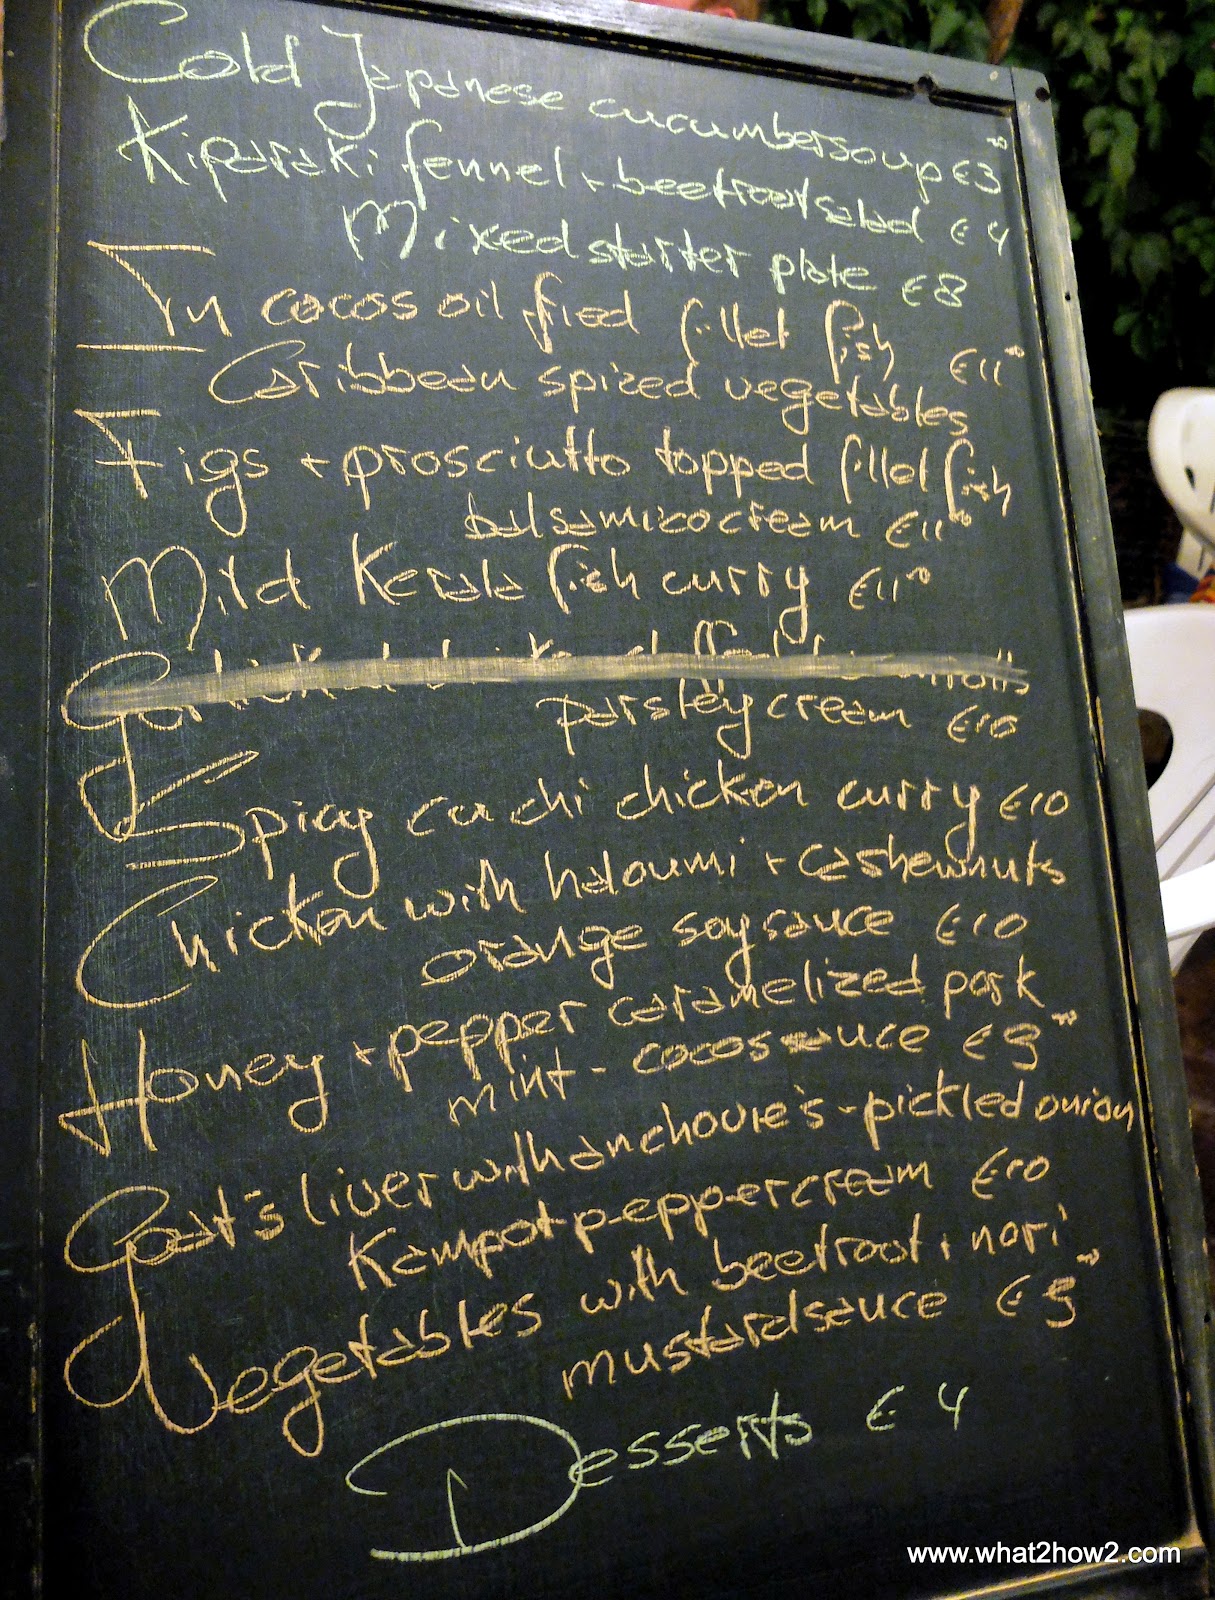 Cold Japanese cucumbersoup €3⁵⁰
Kiparaki fennel + beetrootsalad €4
Mixed starter plate €8
In cocos oil fied fillet fish €11⁵⁰
Caribbean spized vegetables
Figs + prosciutto topped fillet fish
balsamicocream €11⁵⁰
Mild Kerala fish curry €11⁵⁰
parsley cream €10
Spicy cuchi chicken curry €10
Chicken with haloumi + cashewnuts
orange soysauce €10
Honey + pepper caramelized pork
mint - cocossauce €9⁵⁰
Goat's liver with anchovie's - pickled onion
Kampot-peppercream €10
Vegetables with beetroot + nori
mustardsauce €9⁵⁰
Desserts €4
www.what2how2.com